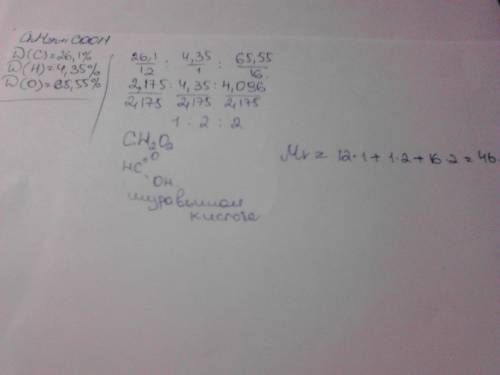 CnH2n+1COOH
W(C)=26,1%
W(H)=4,35%
W(O)=65,55%
26,1/12 : 4,35/1 : 65,55/16
2,175/2,175 : 4,35/2,175 : 4,096/2,175
1 : 2 : 2
CH2O2
HC=O
-OH
муравьиная
кислота
Mr = 12·1+1·2+16·2=46